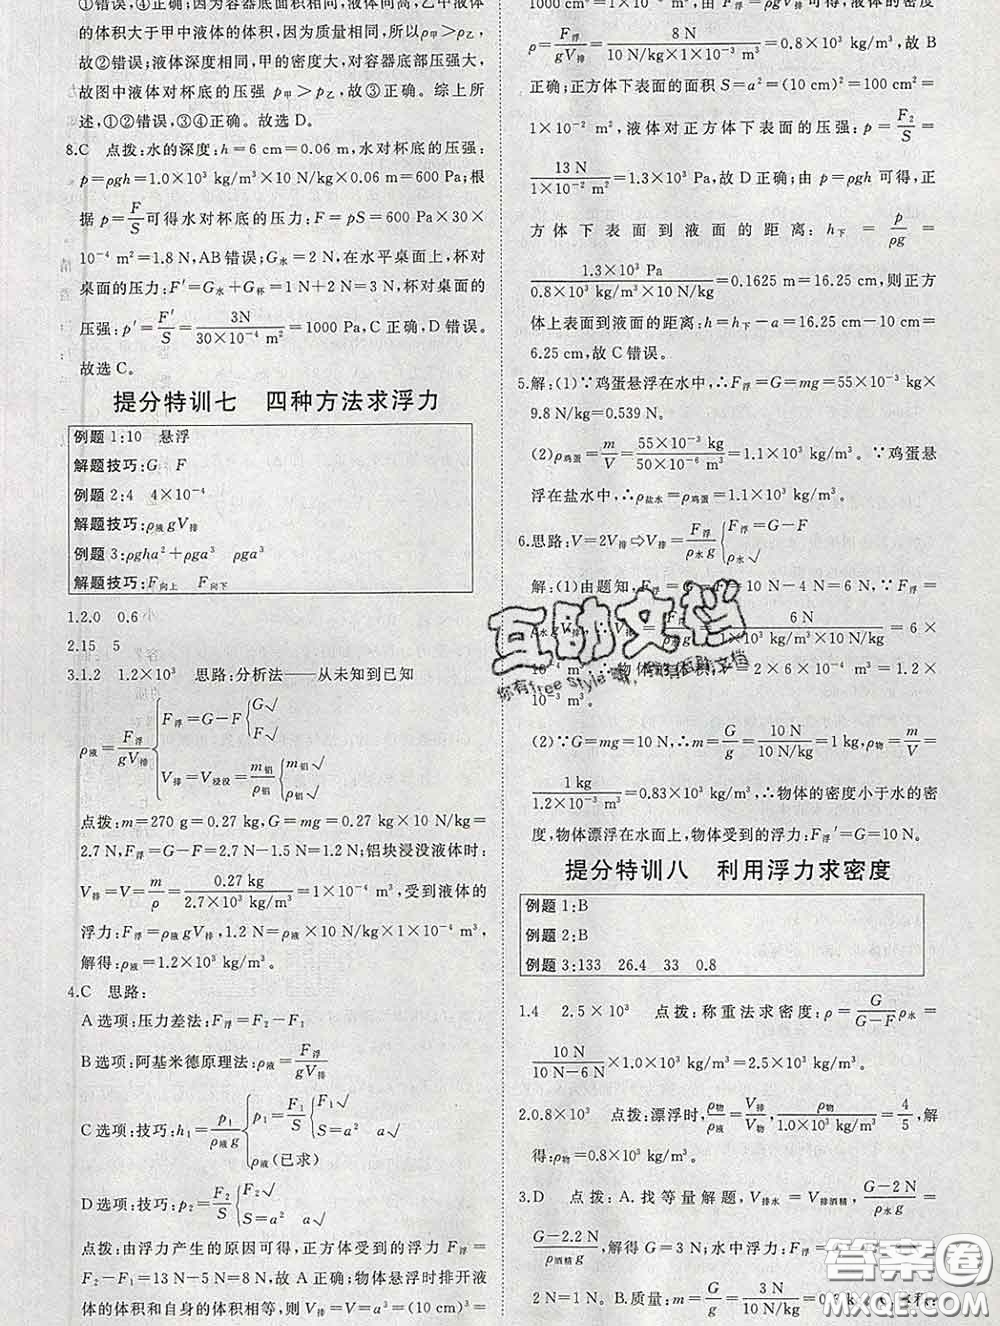 ①错误,④正确;因为容器底面积相同,液体高,乙中液体
的体积大于甲中液体的体积,因为质量相同,所以ρ甲>ρ乙,
故②错误;液体深度相同,甲的密度大,对容器底部压强大,
故图中液体对杯底的压强 p甲>p乙,故③正确。综上所
述,①②错误,③④正确。故选D。
8.C 点拨:水的深度:h=6 cm=0.06 m,水对杯底的压强:
p=ρgh=1.0×10³ kg/m³×10 N/kg×0.06 m=600 Pa;根
据 p=F/S可得水对杯底的压力:F=pS=600 Pa×30×
10⁻⁴ m²=1.8 N,AB错误;G水=2 N,在水平桌面上,杯对
桌面的压力:F′=G水+G杯=1 N+2 N=3 N,杯对桌面的
压强:p′=F′/S=3N/(30×10⁻⁴ m²)=1000 Pa,C正确,D错误。
故选C。
提分特训七 四种方法求浮力
例题1:10 悬浮
解题技巧:G F
例题2:4 4×10⁻⁴
解题技巧:ρ液gV排
例题3:ρgha²+ρga³ ρga³
解题技巧:F向上 F向下
1.2.0 0.6
2.15 5
3.1.2 1.2×10³ 思路:分析法——从未知到已知
ρ液=F浮/(gV排) { F浮=G-F { G√ F√
V排=V浸没=m铝/ρ铝 { m铝√ ρ铝√
点拨:m=270 g=0.27 kg,G=mg=0.27 kg×10 N/kg=
2.7 N,F浮=G-F=2.7 N-1.5 N=1.2 N;铝块浸没液体时:
V排=V=m/ρ=0.27 kg/(2.7×10³ kg/m³)=1×10⁻⁴ m³,受到液体的
浮力:F浮=ρ液gV排,1.2 N=ρ液×10 N/kg×1×10⁻⁴ m³,
解得:ρ液=1.2×10³ kg/m³。
4.C 思路:
A选项:压力差法:F浮=F₂-F₁
B选项:阿基米德原理法:ρ液=F浮/(gV排)
C选项:技巧:h₁=p₁/(ρ液g) { p₁=F₁/S { F₁√ S=a² a√
ρ液(已求)
D选项:技巧:p₂=F₂/S { F₂√ S=a² a√
点拨:由浮力产生的原因可得,正方体受到的浮力 F浮=
F₂-F₁=13 N-5 N=8 N,故A正确;物体悬浮时排开液
体的体积和自身的体积相等,则 V排=V=a³=(10 cm)³=
1000 cm³=1×10⁻³ m³,由 F浮=ρgV排可得,液体的密度
ρ=F浮/(gV排)=8 N/(10 N/kg×1×10⁻³ m³)=0.8×10³ kg/m³,故B
正确;正方体下表面的面积 S=a²=(10 cm)²=100 cm²=
1×10⁻² m²,液体对正方体下表面的压强:p=F₂/S=
13 N/(1×10⁻² m²)=1.3×10³ Pa,故D正确;由 p=ρgh 可得,正
方体下表面到液面的距离:h下=p/(ρg)=
1.3×10³ Pa/(0.8×10³ kg/m³×10 N/kg)=0.1625 m=16.25 cm,则正方
体上表面到液面的距离:h=h下-a=16.25 cm-10 cm=
6.25 cm,故C错误。
5.解:(1)∵鸡蛋悬浮在水中,∴F浮=G=mg=55×10⁻³ kg×
9.8 N/kg=0.539 N。
(2)ρ鸡蛋=m/V=55×10⁻³ kg/(50×10⁻⁶ m³)=1.1×10³ kg/m³。∵鸡蛋悬
浮在盐水中,∴ρ盐水=ρ鸡蛋=1.1×10³ kg/m³。
6.思路:V=2V排⇨V排=F浮/(ρ水g) { F浮=G-F ρ水√
解:(1)由题知,F浮=G-F=10 N-4 N=6 N,
水gV排, 6 N =6×
10⁻⁴ m³,∴物体的体积: =1.2×
10⁻³ m³。
(2)∵G=mg=10 N,∴m=G/g=10 N/(10 N/kg)=1 kg,ρ物=m/V=
1 kg/(1.2×10⁻³ m³)=0.83×10³ kg/m³,∴物体的密度小于水的密
度,物体漂浮在水面上,物体受到的浮力:F浮′=G=10 N。
提分特训八 利用浮力求密度
例题1:B
例题2:B
例题3:133 26.4 33 0.8
1.4 2.5×10³ 点拨:称重法求密度:ρ=G/(G-F)ρ水=
10 N/(10 N-6 N)×1.0×10³ kg/m³=2.5×10³ kg/m³。
2.0.8×10³ 点拨:漂浮时,ρ物/ρ液=V排/V物,ρ物/(1.0×10³ kg/m³)=4/5,解
得:ρ物=0.8×10³ kg/m³。
3.D 点拨:A.找等量解题,V排水=V排酒精,(G-2 N)/(ρ水g)=
(G-2.2 N)/(ρ酒精g),解得 G=3 N;水中浮力:
2 N=1 N。B.质量:m=G/g=3 N/(10 N/kg)=0.3 kg,
互助文档
答案圈
MXQE.COM